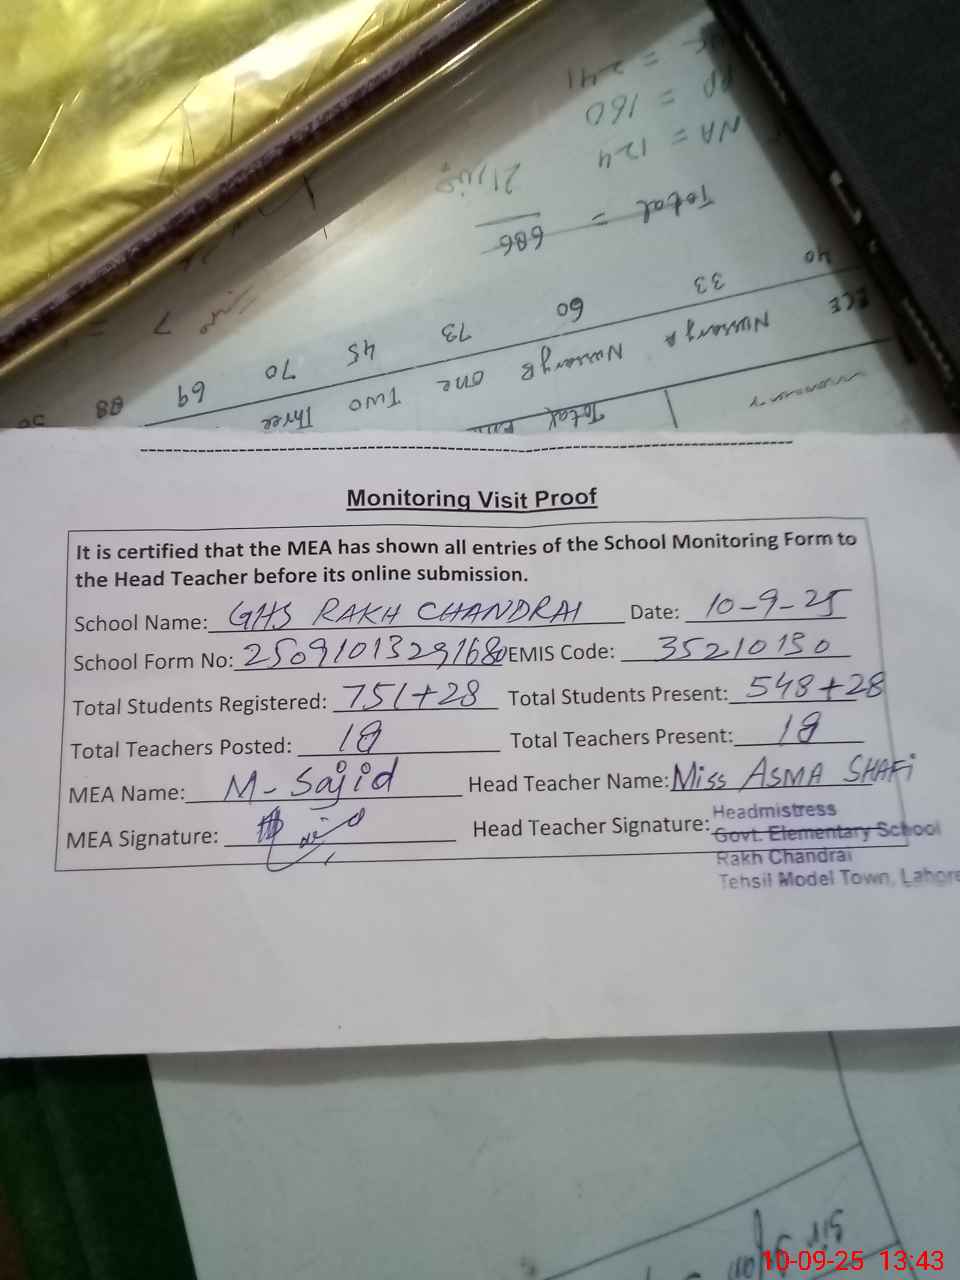 = 241
PP = 160
NA = 124
Total = 686
40
33
60
73
45
70
69
88
ECE
Nursery A
Nursery B
one
Two
Three
Total
Monitoring Visit Proof
It is certified that the MEA has shown all entries of the School Monitoring Form to
the Head Teacher before its online submission.
School Name: GHS RAKH CHANDRAI Date: 10-9-25
School Form No: 25091013291680 EMIS Code: 35210130
Total Students Registered: 751+28 Total Students Present: 548+28
Total Teachers Posted: 18 Total Teachers Present: 18
MEA Name: M-Sajid Head Teacher Name: Miss ASMA SHAFi
MEA Signature: Head Teacher Signature:
Headmistress
Govt. Elementary School
Rakh Chandrai
Tehsil Model Town, Lahore
Sir
10-09-25 13:43